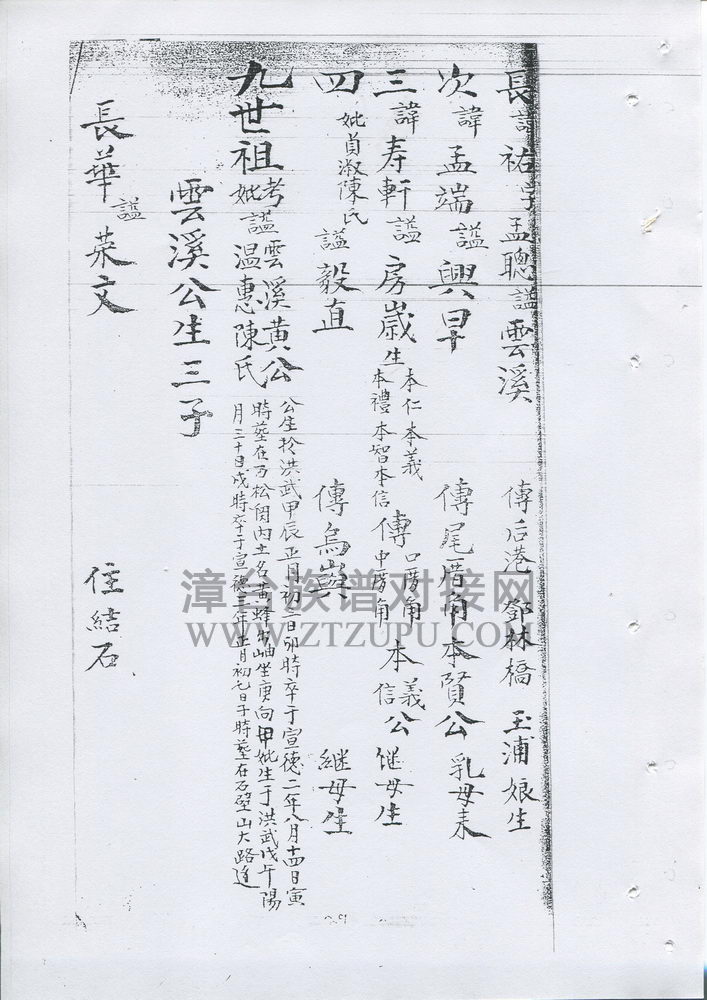 長諱祐字孟聰謚雲溪 傳后港 鄧林橋 玉浦娘生
次諱孟端謚興早 傳尾厝角本賢公 乳母來
三諱寿軒謚 房歲生本仁本義本禮本智本信 傳口厝角中厝角 本義信公 继母生
四 妣貞淑陳氏 謚毅直 傳烏 継母生
九世祖考謚雲溪黄公妣謚温惠陳氏
公生於洪武甲辰正月初一日卯時卒于宣德二年八月十四日寅
時塟在万松関内土名黄蜂出岫坐庚向甲妣生于洪武戊午陽
月三十日戍時卒于宣德三年正月初七日子時塟在石壁山大路边
雲溪公生三子
長華謚荣文 住結石
漳台族谱对接网
WWW.ZTZUPU.COM